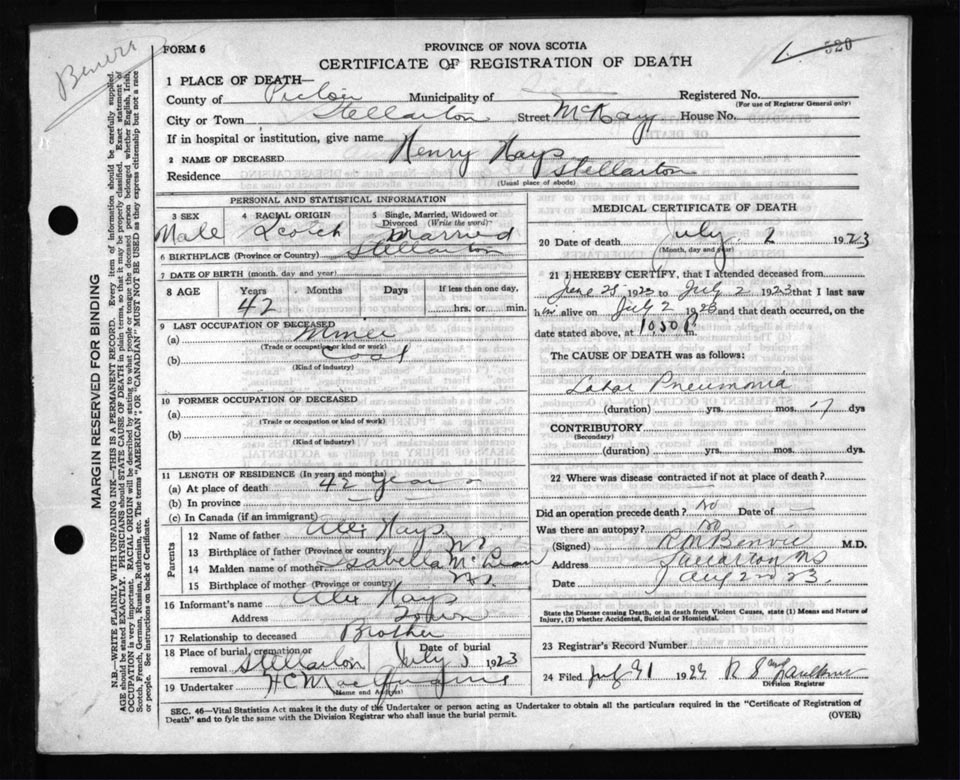 Benvie
520
FORM 6
PROVINCE OF NOVA SCOTIA
CERTIFICATE OF REGISTRATION OF DEATH
1 PLACE OF DEATH—
County of Pictou Municipality of Registered No.
(For use of Registrar General only)
City or Town Stellarton Street McKay House No.
If in hospital or institution, give name
2 NAME OF DECEASED Henry Hays
Residence Stellarton
(Usual place of abode)
PERSONAL AND STATISTICAL INFORMATION
3 SEX 4 RACIAL ORIGIN 5 Single, Married, Widowed or Divorced (Write the word)
Male Scotch Married
6 BIRTHPLACE (Province or Country) Stellarton
7 DATE OF BIRTH (month, day and year)
8 AGE Years Months Days If less than one day,
42 hrs. or min.
9 LAST OCCUPATION OF DECEASED
(a) Miner
(Trade or occupation or kind of work)
(b) Coal
(Kind of industry)
10 FORMER OCCUPATION OF DECEASED
(a)
(Trade or occupation or kind of work)
(b)
(Kind of industry)
11 LENGTH OF RESIDENCE (In years and months)
(a) At place of death 42 Years
(b) In province
(c) In Canada (if an immigrant)
Parents
12 Name of father Alex Hays
13 Birthplace of father (Province or country) NS
14 Maiden name of mother Isabella McLean
15 Birthplace of mother (Province or country) NS
16 Informant's name Alex Hays
Address Town
17 Relationship to deceased Brother
18 Place of burial, cremation or removal Stellarton Date of burial July 1923
19 Undertaker
(Name and Address)
MEDICAL CERTIFICATE OF DEATH
20 Date of death July 2 1923
(Month, day and year)
21 I HEREBY CERTIFY, that I attended deceased from
June 28 1923 to July 2 1923 that I last saw
him alive on July 2 1923 and that death occurred, on the
date stated above, at 1030 P.m.
The CAUSE OF DEATH was as follows:
Lobar Pneumonia
(duration) yrs. mos. 7 dys
CONTRIBUTORY
(Secondary)
(duration) yrs. mos. dys
22 Where was disease contracted if not at place of death?
Did an operation precede death? No Date of —
Was there an autopsy? No
(Signed) Benvie M.D.
Address Stellarton NS
Date 2nd 23
State the Disease causing Death, or in death from Violent Causes, state (1) Means and Nature of
Injury, (2) whether Accidental, Suicidal or Homicidal.
23 Registrar's Record Number
24 Filed July 192
Division Registrar
SEC. 46—Vital Statistics Act makes it the duty of the Undertaker or person acting as Undertaker to obtain all the particulars required in the "Certificate of Registration of
Death" and to fyle the same with the Division Registrar who shall issue the burial permit.
(OVER)
MARGIN RESERVED FOR BINDING
N.B.—WRITE PLAINLY WITH UNFADING INK—THIS IS A PERMANENT RECORD. Every item of information should be carefully supplied.
AGE should be stated EXACTLY. PHYSICIANS should STATE CAUSE OF DEATH in plain terms, so that it may be properly classified. Exact statement of
OCCUPATION is very important. RACIAL ORIGIN will be described by stating to what people or tongue the deceased person belonged whether English, Irish,
Scotch, French, German, Russian, Ruthenian, etc. The terms "AMERICAN" OR "CANADIAN" MUST NOT BE USED as they express citizenship but not a race
or people. See instructions on back of Certificate.